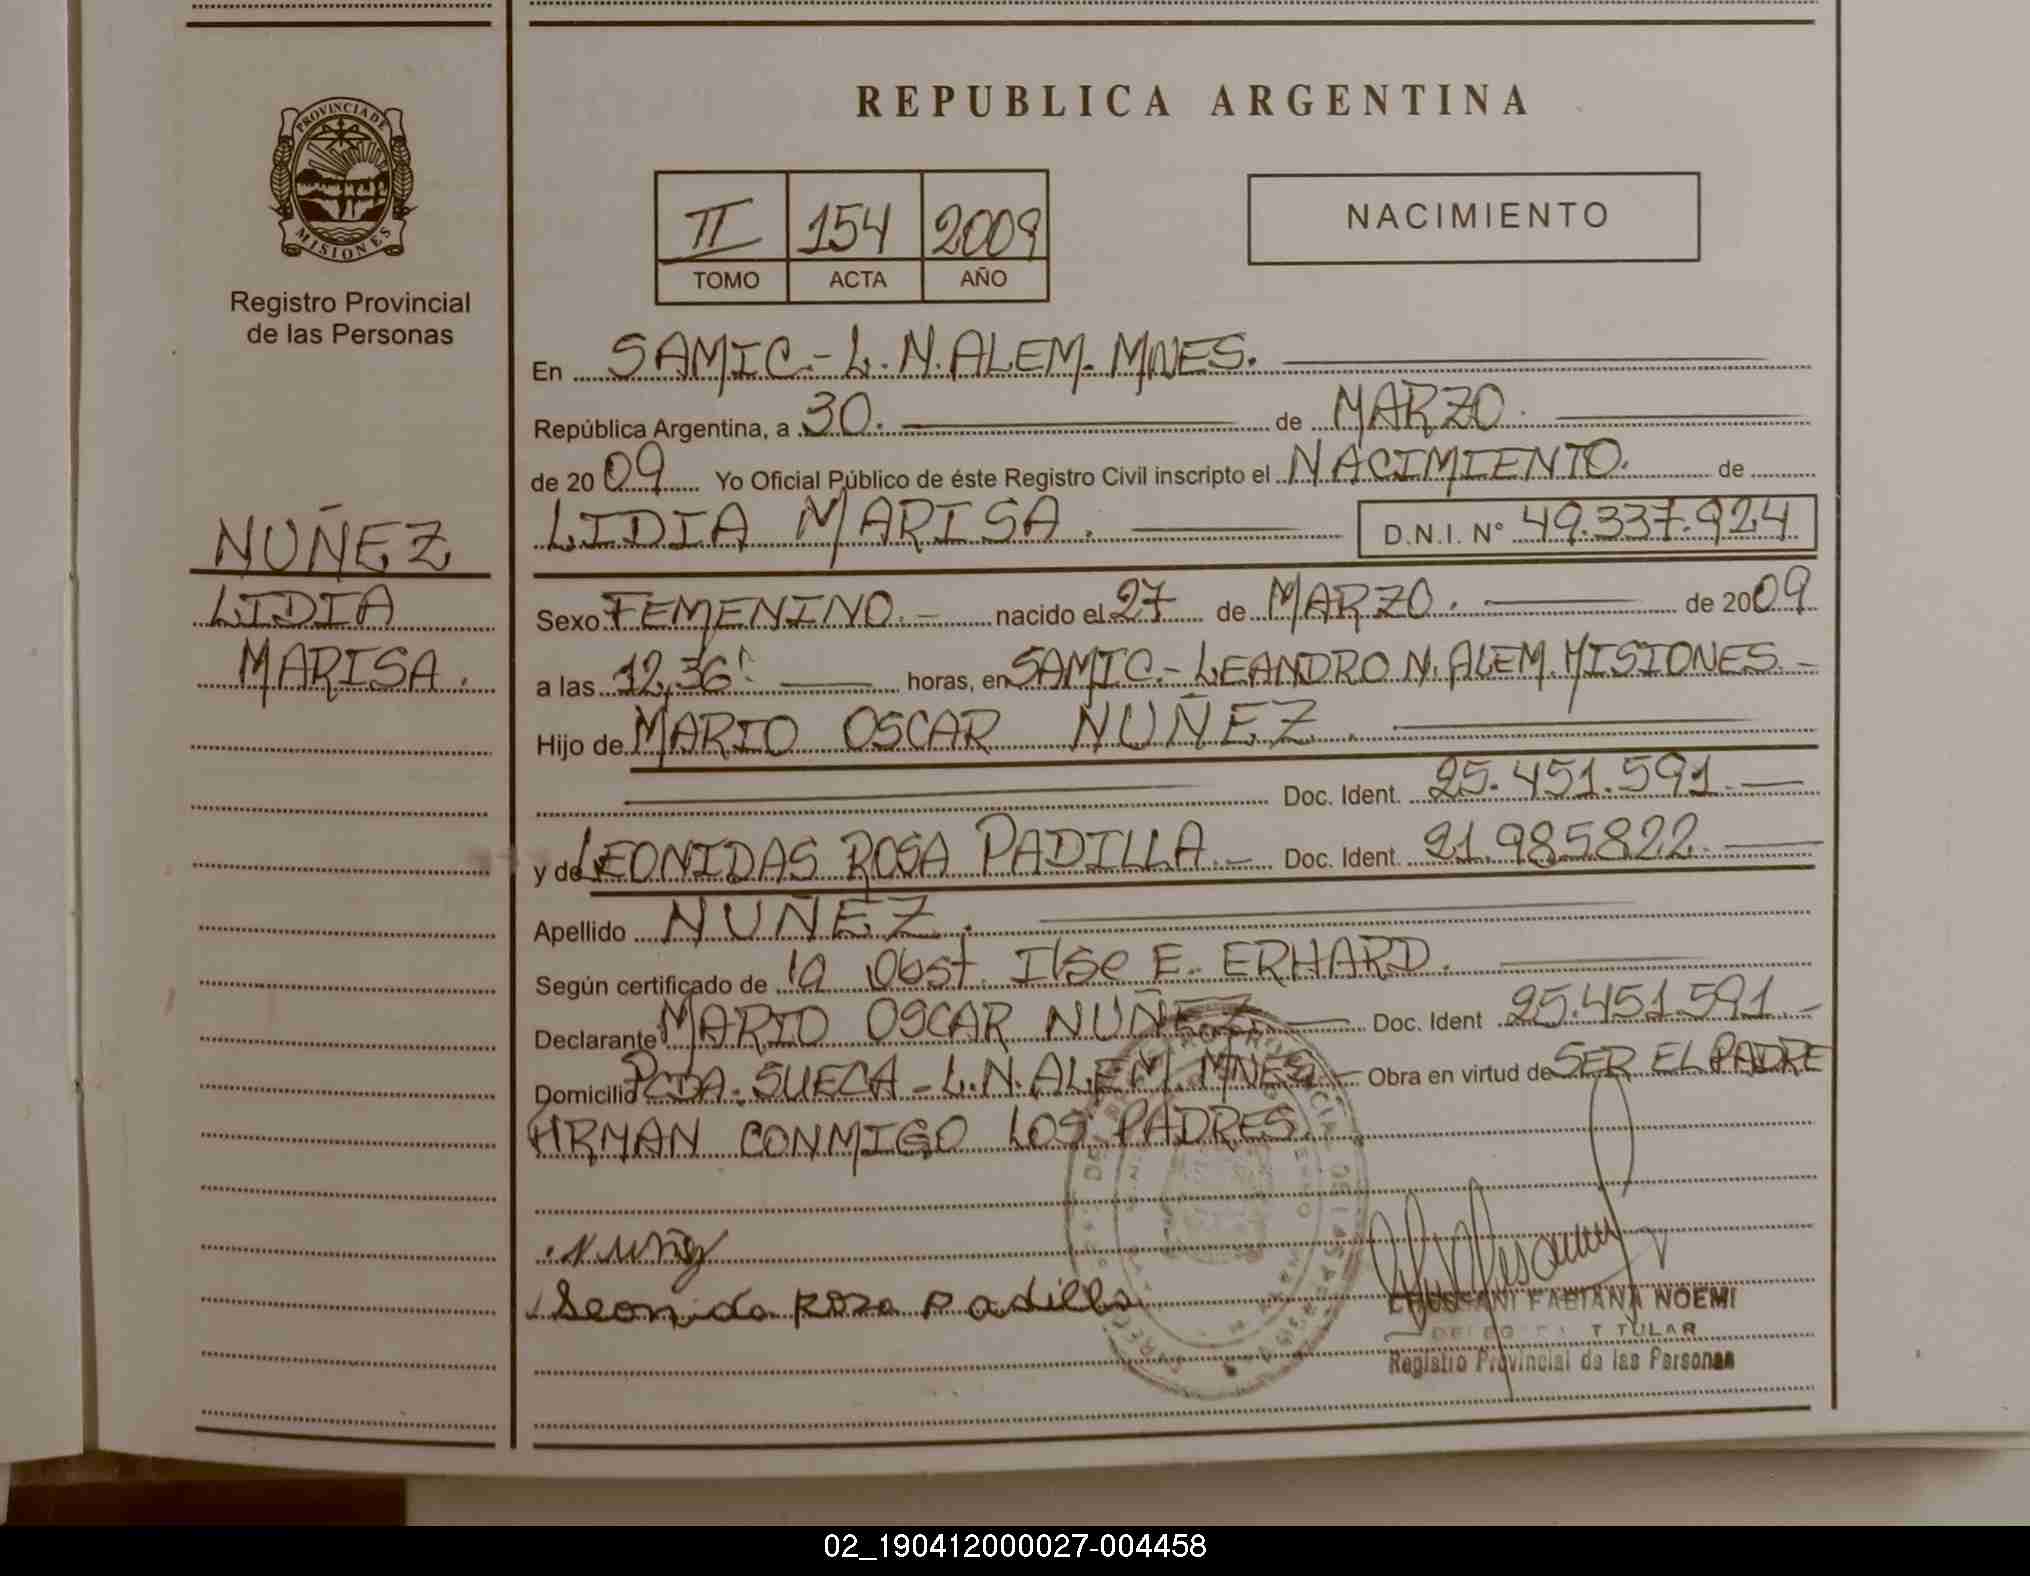 REPUBLICA ARGENTINA
PROVINCIA DE
MISIONES
Registro Provincial
de las Personas
II 154 2009
TOMO ACTA AÑO
NACIMIENTO
En SAMIC.- L.N.ALEM.MNES.
República Argentina, a 30. de MARZO.
de 2009 Yo Oficial Público de éste Registro Civil inscripto el NACIMIENTO. de
LIDIA MARISA. D.N.I. N° 49.337.924
NUÑEZ
LIDIA
MARISA.
Sexo FEMENINO.- nacido el 27 de MARZO. de 2009
a las 12,36' horas, en SAMIC.- LEANDRO N. ALEM.MISIONES.-
Hijo de MARIO OSCAR NUÑEZ.
Doc. Ident. 25.451.591.
y de LEONIDAS ROSA PADILLA.- Doc. Ident. 21.985822.
Apellido NUÑEZ.
Según certificado de la Obst. Ilse E. ERHARD.
Declarante MARIO OSCAR NUÑEZ Doc. Ident 25.451.591.-
Domicilio PCDA. SUECA - L.N.ALEM.MNES.- Obra en virtud de SER EL PADRE
FIRMAN CONMIGO LOS PADRES.
Nuñez
Leonida Rosa Padilla
FABIANA NOEMI
TITULAR
Registro Provincial de las Personas
02_190412000027-004458